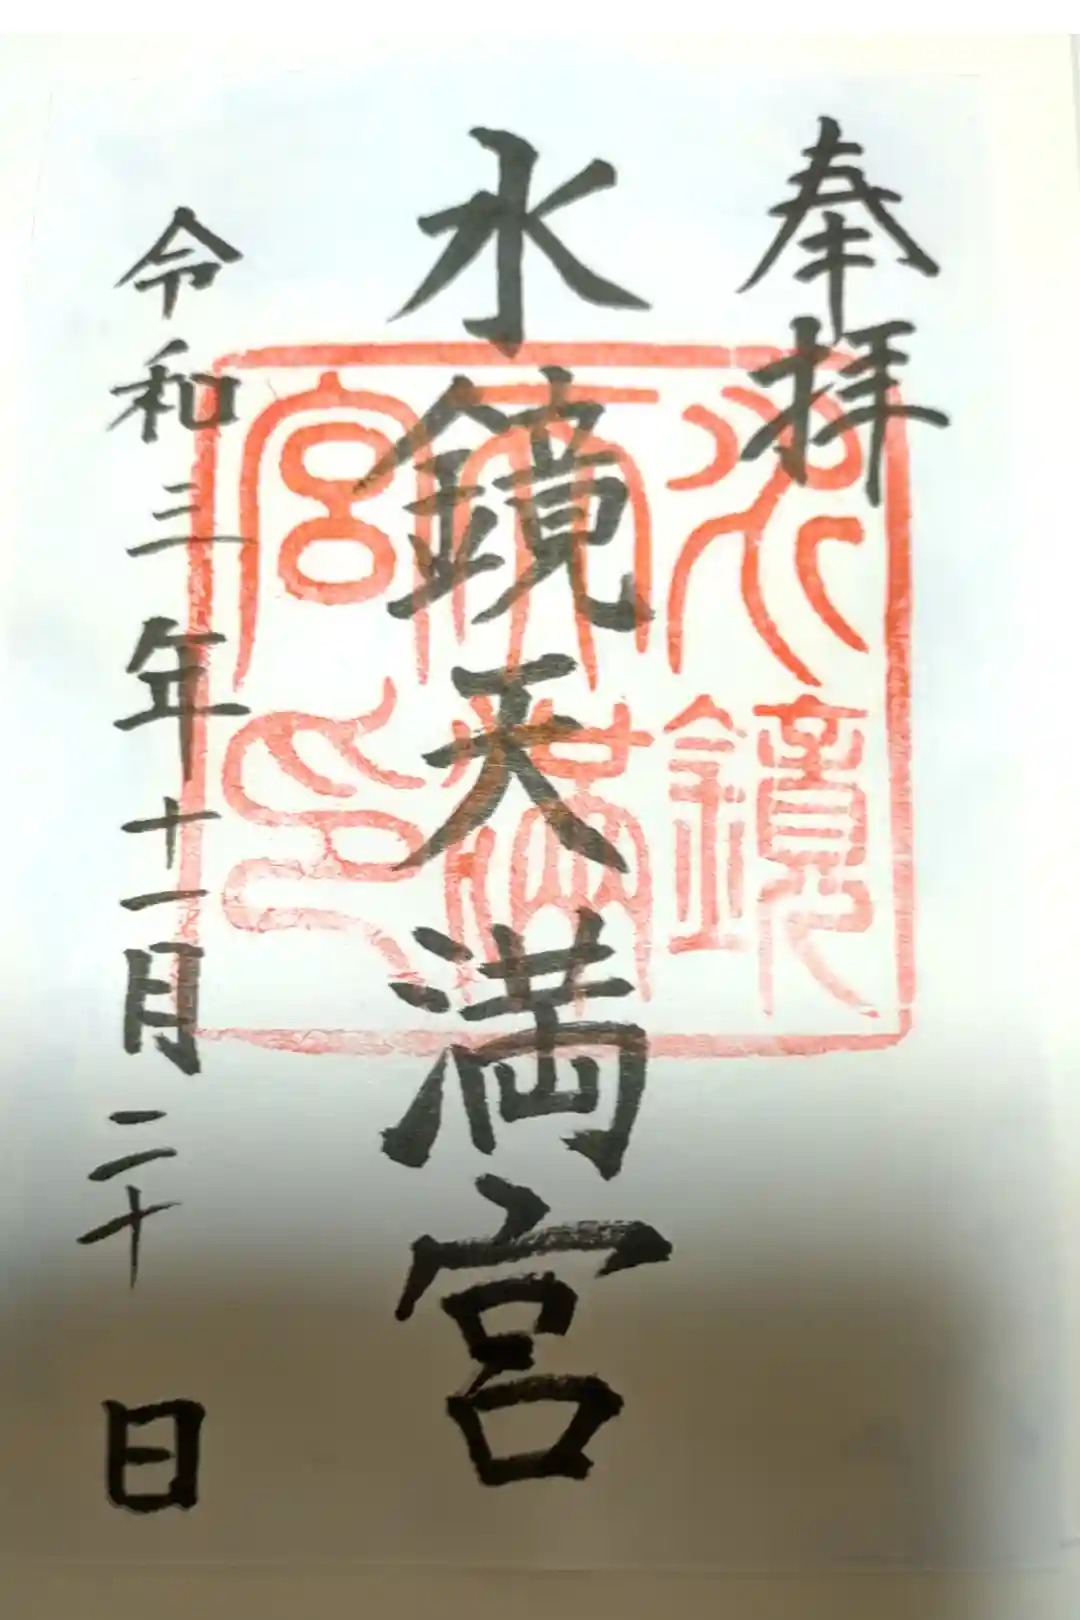 奉拝
水鏡天満宮
水鏡
天満
宮印
令和三年十一月二十日